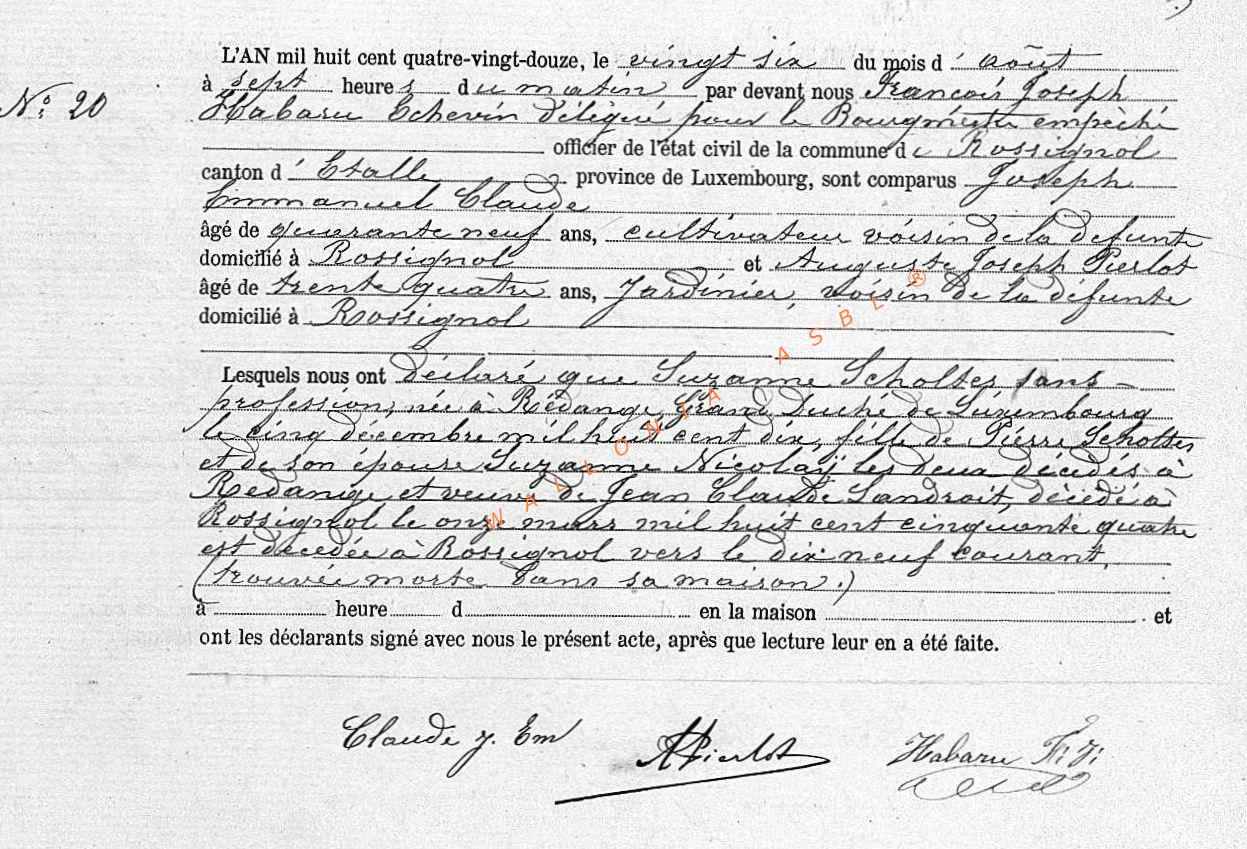 L'AN mil huit cent quatre-vingt-douze, le vingt six du mois d' août
à sept heures du matin par devant nous François Joseph
N° 20
Habaru Echevin délégué pour le Bourgmestre empêché
officier de l'état civil de la commune de Rossignol
canton d' Etalle province de Luxembourg, sont comparus Joseph
Emmanuel Claude
âgé de quarante neuf ans, cultivateur voisin de la défunte
domicilié à Rossignol et Auguste Joseph Pierlot
âgé de trente quatre ans, Jardinier, voisin de la défunte
domicilié à Rossignol
Lesquels nous ont déclaré que Suzanne Scholtes sans
profession, née à Rédange, Grand Duché de Luxembourg
le cinq décembre mil huit cent dix, fille de Pierre Scholtes
et de son épouse Suzanne Nicolaÿ les deux décédés à
Redange et veuve de Jean Claude Landroit, décédé à
Rossignol le onze mars mil huit cent cinquante quatre
est décédée à Rossignol vers le dix neuf courant,
(trouvée morte dans sa maison.)
à heure d en la maison et
ont les déclarants signé avec nous le présent acte, après que lecture leur en a été faite.
Claude J. Em APierlot Habaru F. J.
WALLONIA ASBL ®